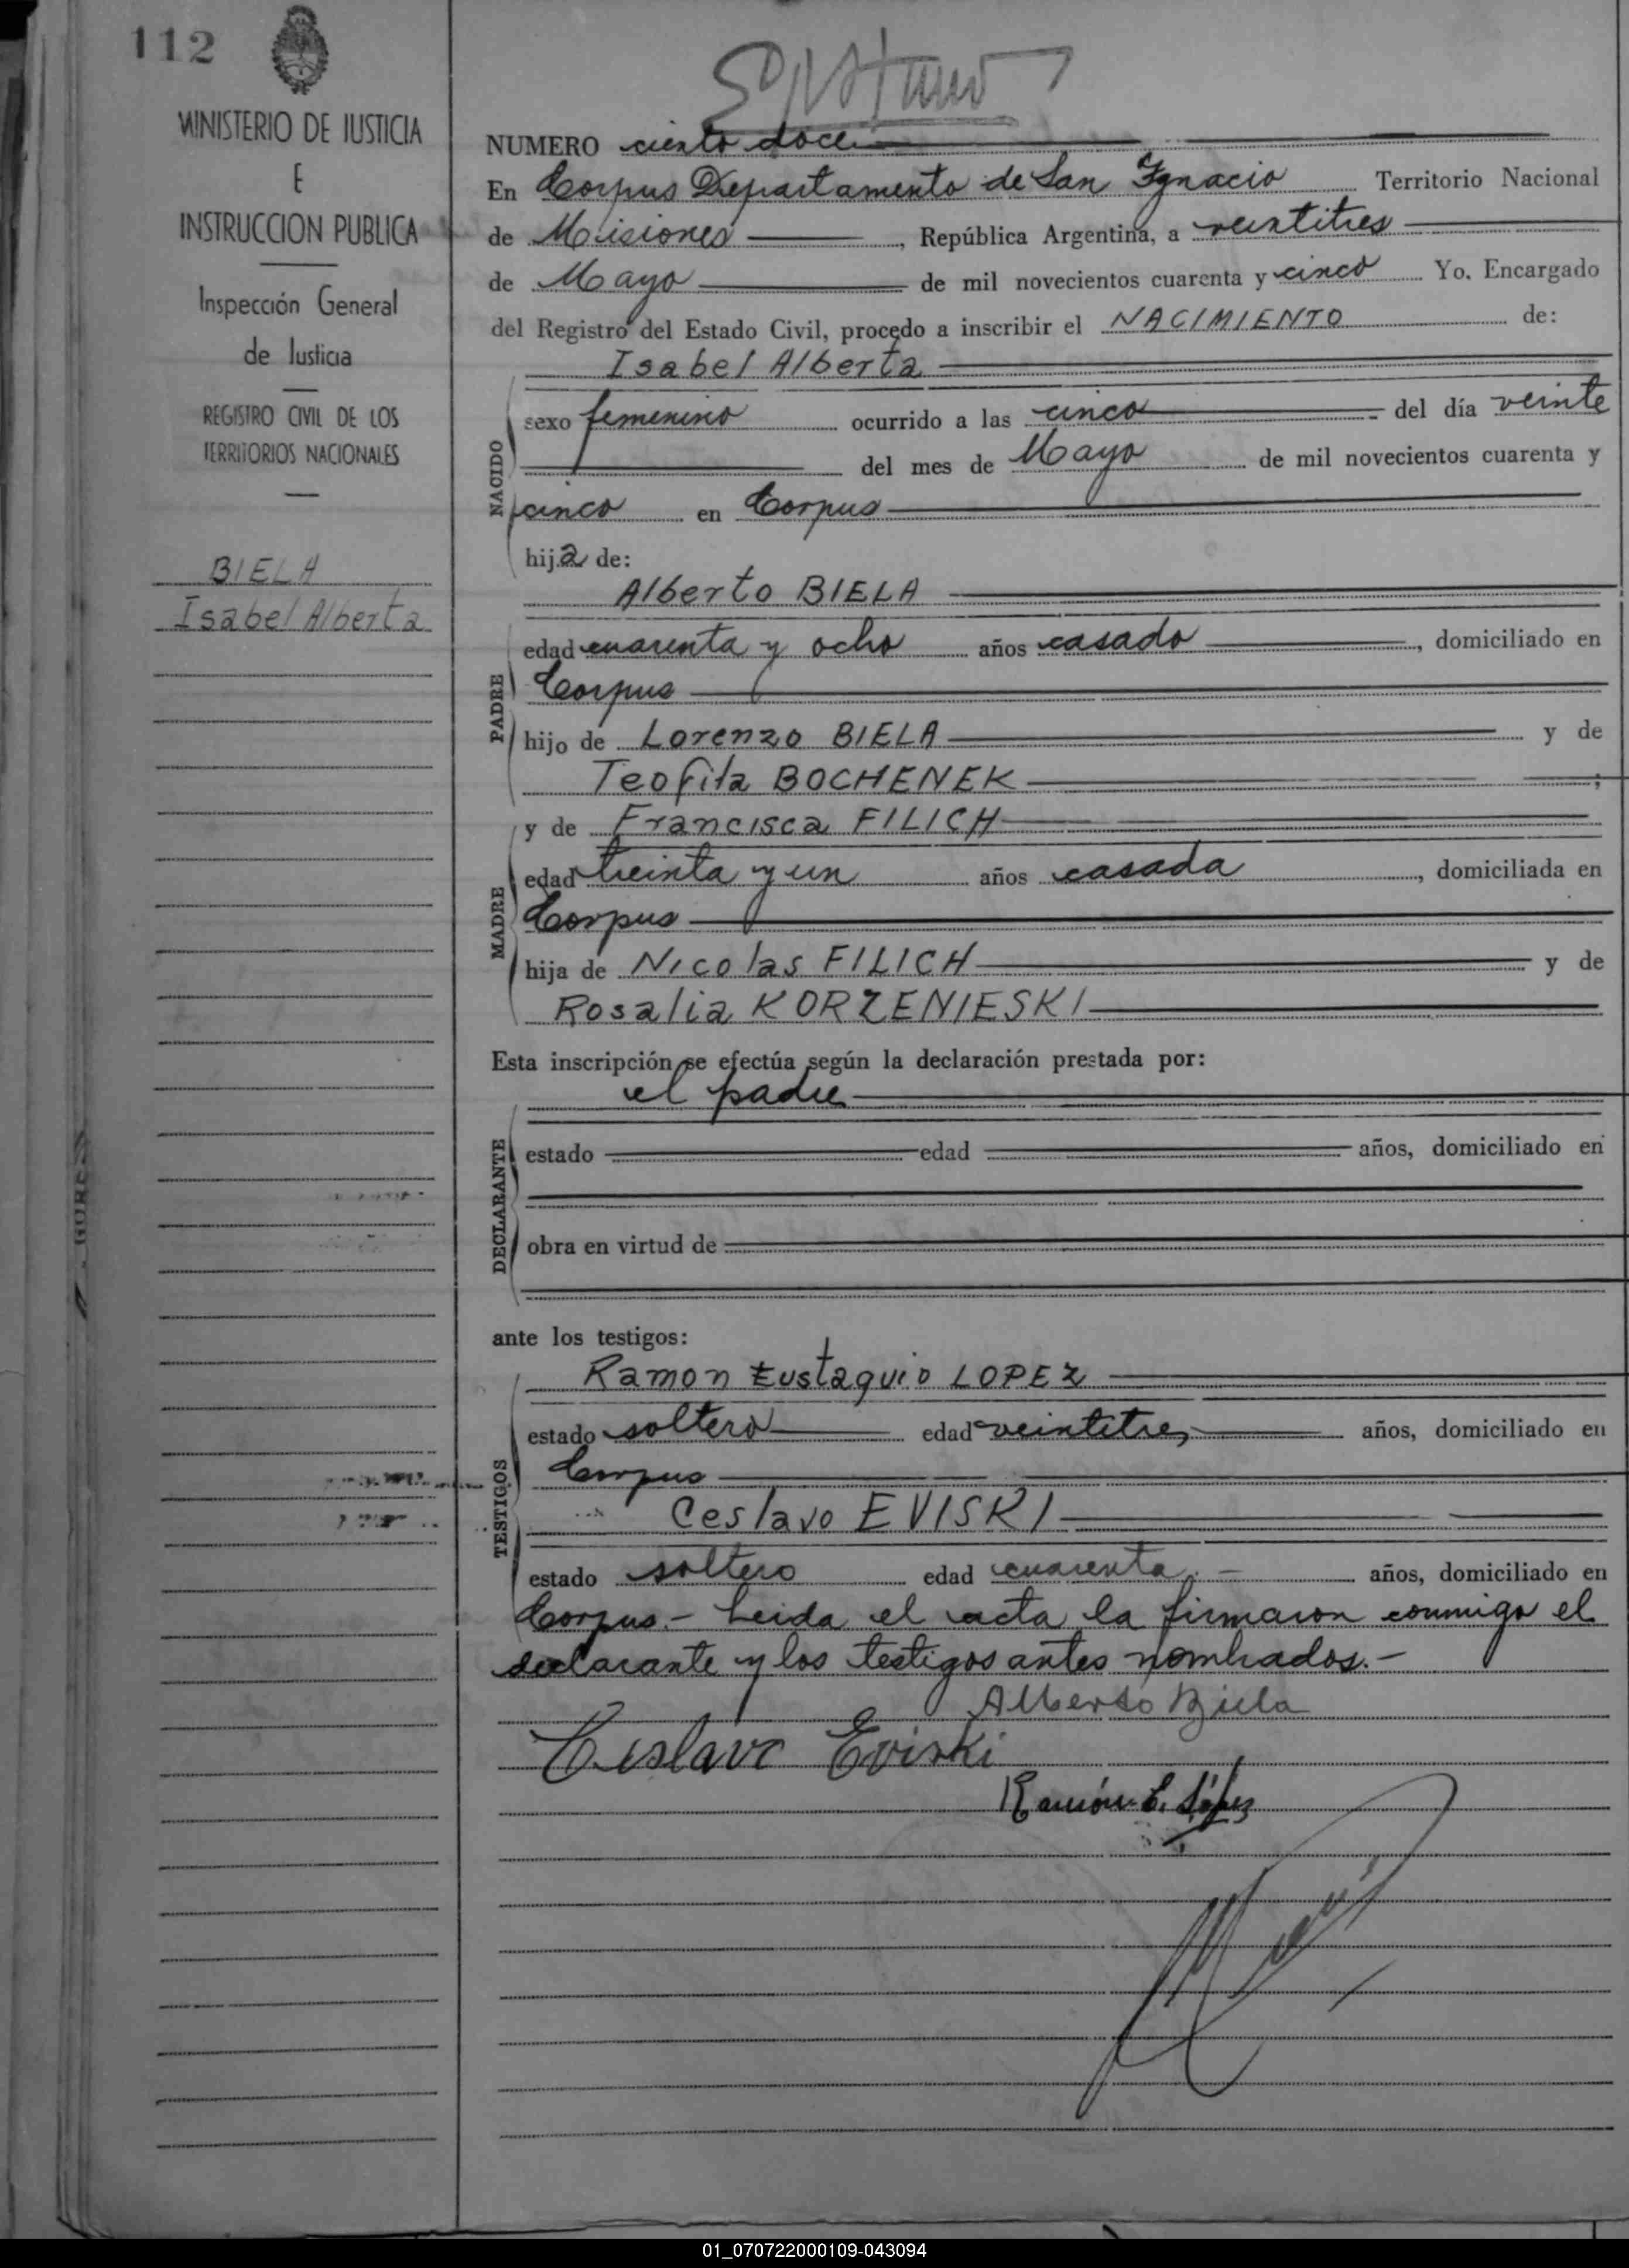 112
MINISTERIO DE JUSTICIA
E
INSTRUCCION PUBLICA
Inspección General
de Justicia
REGISTRO CIVIL DE LOS
TERRITORIOS NACIONALES
BIELA
Isabel Alberta
NUMERO ciento doce
En Corpus Departamento de San Ignacio Territorio Nacional
de Misiones, República Argentina, a veintitres
de Mayo de mil novecientos cuarenta y cinco Yo, Encargado
del Registro del Estado Civil, procedo a inscribir el NACIMIENTO de:
Isabel Alberta
NACIDO
sexo femenino ocurrido a las cinco del día veinte
del mes de Mayo de mil novecientos cuarenta y
cinco en Corpus
hija de:
Alberto BIELA
PADRE
edad cuarenta y ocho años casado, domiciliado en
Corpus
hijo de Lorenzo BIELA y de
Teofila BOCHENEK;
MADRE
y de Francisca FILICH
edad treinta y un años casada, domiciliada en
Corpus
hija de Nicolas FILICH y de
Rosalia KORZENIESKI
Esta inscripción se efectúa según la declaración prestada por:
el padre
DECLARANTE
estado edad años, domiciliado en
obra en virtud de
ante los testigos:
Ramon Eustaquio LOPEZ
TESTIGOS
estado soltero edad veintitres años, domiciliado en
Corpus
Ceslavo EVISKI
estado soltero edad cuarenta.- años, domiciliado en
Corpus.- Leida el acta la firmaron conmigo el
declarante y los testigos antes nombrados.-
Alberto Biela
Ceslavo Eviski
Ramón E. López
01_070722000109-043094